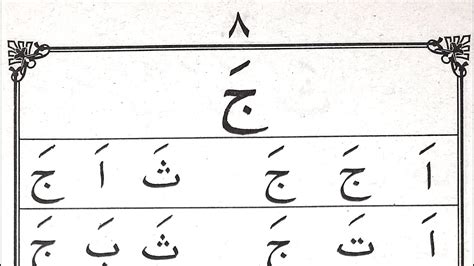 ٨
جَ
اَ جَ جَ ثَ اَ جَ
اَ تَ جَ ثَ بَ جَ